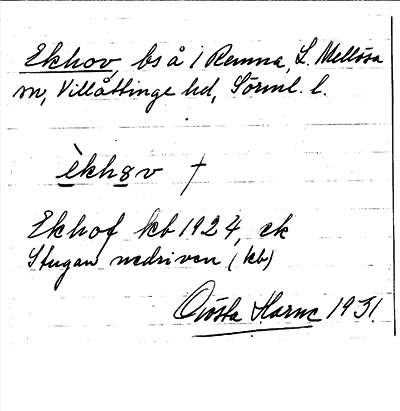 Ekhov, bs å 1 Remna, L. Mellösa
sn, Villåttinge hd, Sörml. l.
èkhov †
Ekhof kb 1924, ek
Stugan nedriven (kb)
Gösta Harne 1931.